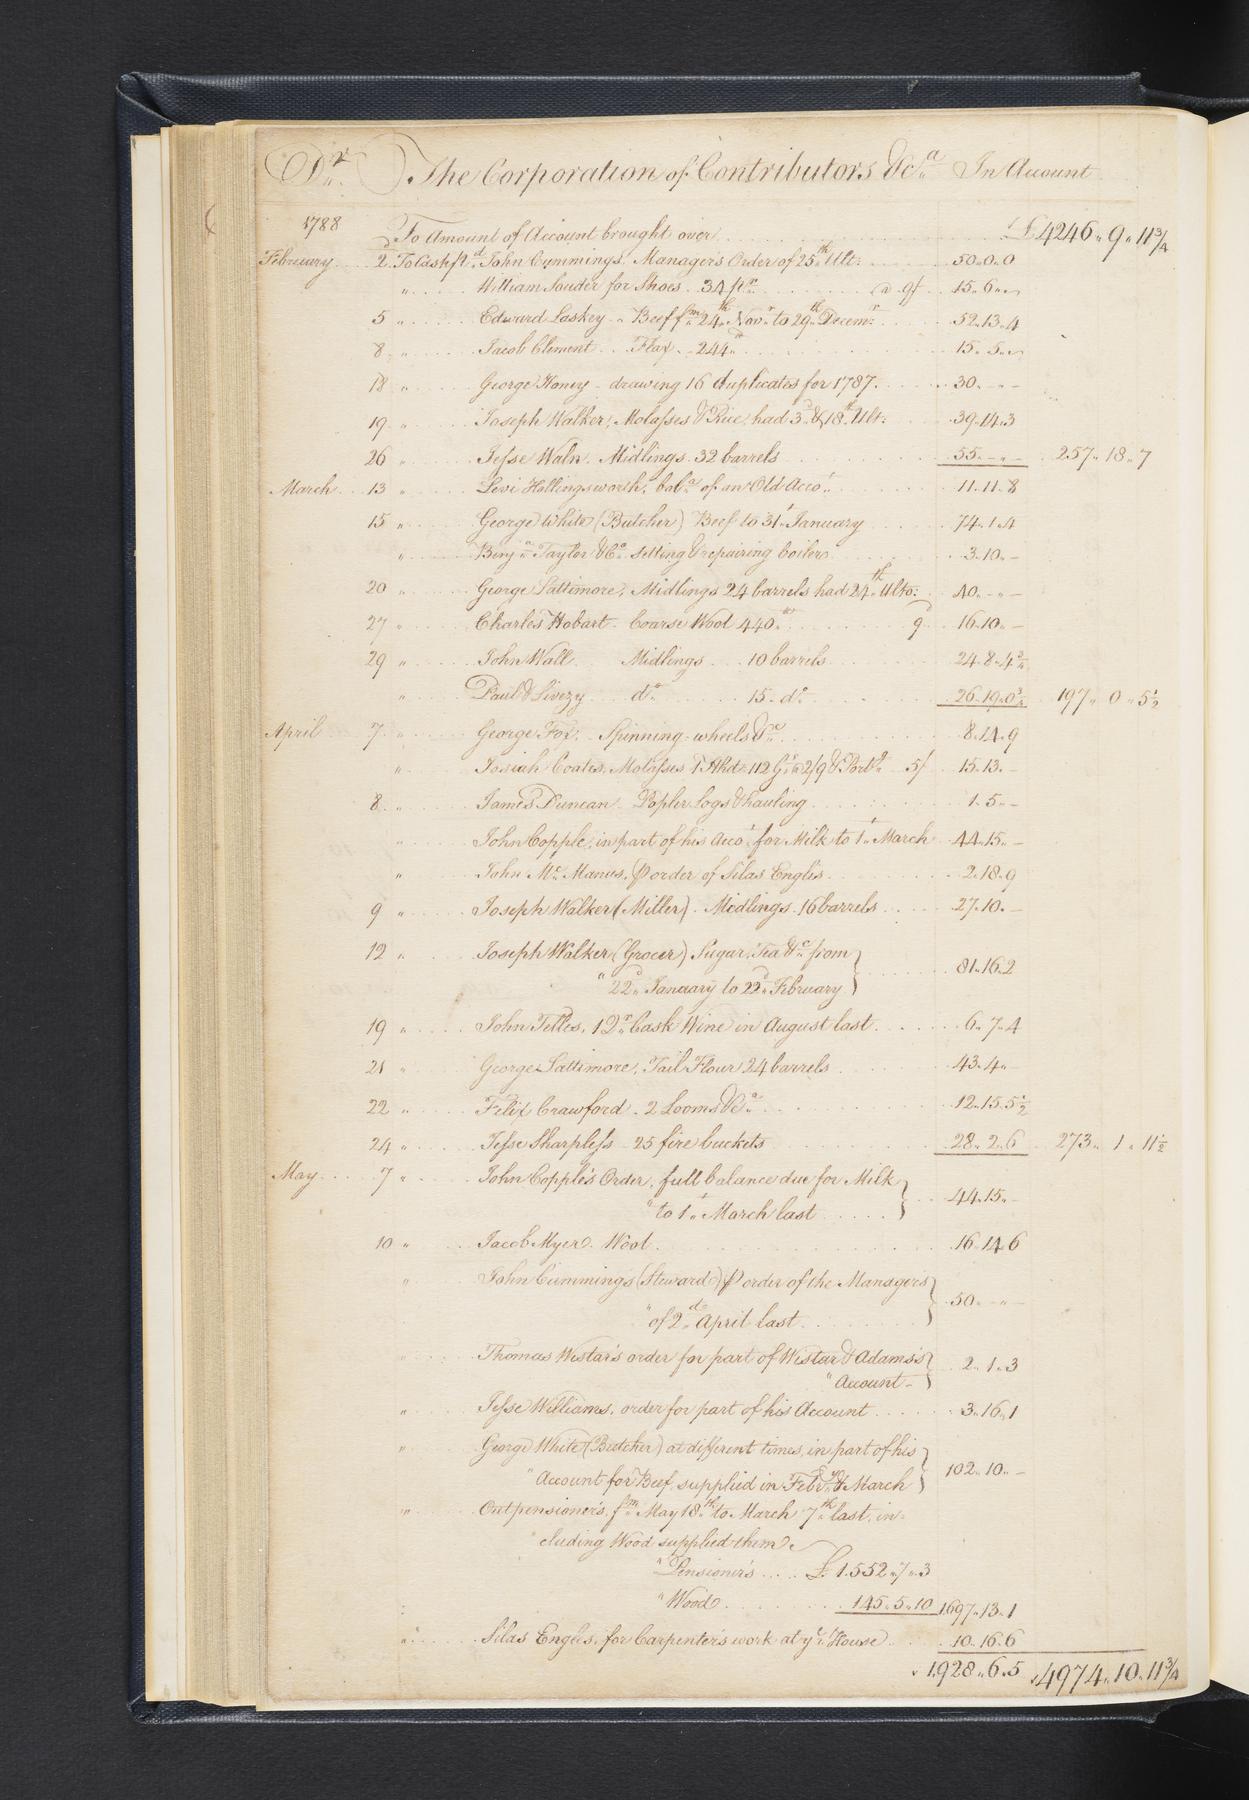 Dr. The Corporation of Contributors &ca. In Account
1788 To Amount of Account brought over £4246„9„11¾
February 2 To Cash pd. John Cummings, Managers Order of 25th Ult: 50„0„0
„ William Souder for Shoes. 34 pr. @ 9/ 15„6„~
5 „ Edward Laskey „ Beef fm. 24th Novr. to 29th Decemr. 52„13„4
8 „ Jacob Clement Flax 244 15„5„~
18 „ George Honey drawing 16 duplicates for 1787. 30„-„-
19 „ Joseph Walker, Molasses & Rice, had 3d & 18th Ult: 39„14„3
26 „ Jesse Waln. Midlings 32 barrels 55„-„- 257„18„7
March 13 „ Levi Hollingsworth, bale. of an Old Accot. 11„11„8
15 „ George White (Butcher) Beef to 31st January 74„1„4
„ Benjn. Taylor & Co. setting & repairing boilers 3„10„-
20 „ George Lattimore, Midlings 24 barrels had 24th Ulto: 40„-„-
27 „ Charles Hobart Coarse Wool 440 9d 16„10„-
29 „ John Wall Midlings 10 barrels 24„8„4¾
„ Paul & Livezy do. 15 do. 26„19„0¾ 197„0„5½
April 7 „ George Fox, Spinning-wheels &c. 8„14„9
„ Josiah Coates, Molasses 1 Hhd: 112 Gs. @ 2/9 & Portg. 5/ 15„13„-
8 „ James Duncan Popler Logs & hauling 1„5„-
„ John Copple, in part of his Accot. for Milk to 1st March 44„15„-
„ John Mc.Manus, ⅌ order of Silas Engles 2„18„9
9 „ Joseph Walker (Miller) Midlings 16 barrels 27„10„-
12 „ Joseph Walker (Grocer) Sugar, Tea &c. from
„ 22d January to 22d February 81„16„2
19 „ John Telles, 1 Qr. Cask Wine in August last 6„7„4
21 „ George Lattimore, Tail Flour 24 barrels 43„4„-
22 „ Felix Crawford 2 Looms &ca. 12„15„5½
24 „ Jesse Sharpless 25 fire buckets 28„2„6 273„1„11½
May 7 „ John Copple's Order, full balance due for Milk
„ to 1st March last 44„15„-
10 „ Jacob Myer. Wool 16„14„6
„ John Cummings (Steward) ⅌ order of the Managers
„ of 2d April last 50„-„-
„ Thomas Wistar's order for part of Wistar & Adams's
„ Account 2„1„3
„ Jesse Williams, order for part of his Account 3„16„1
„ George White (Butcher) at different times, in part of his
„ Account for Beef, supplied in Feby. & March 102„10„-
„ Outpensioner's, fm. May 18th to March 7th last, in-
„ cluding Wood supplied them
„ Pensioner's £1552„7„3
„ Wood 145„5„10 1697„13„1
„ Silas Engles, for Carpenter's work at ye. House 10„16„6
1928„6„5 4974„10„11¾